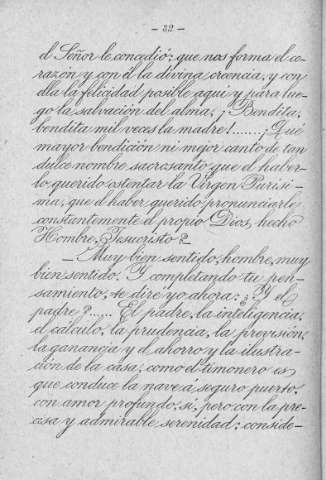 — 32 —
el Señor le concedió; que nos forma el co-
razón y con él la divina creencia, y con
ella la felicidad posible aquí y para lue-
go la salvación del alma, ¡Bendita,
bendita mil veces la madre!......¡Qué
mayor bendición ni mejor canto de tan
dulce nombre sacrosanto que el haber-
lo querido ostentar la Virgen Purísi-
ma, que el haber querido pronunciarle
constantemente el propio Dios, hecho
Hombre, Jesucristo?
— Muy bien sentido, hombre, muy
bien sentido. Y completando tu pen-
samiento, te diré yo ahora: ¿Y el
padre?...... El padre, la inteligencia,
el cálculo, la prudencia, la previsión,
la ganancia y el ahorro y la ilustra-
ción de la casa; como el timonero es
que conduce la nave á seguro puerto,
con amor profundo, sí, pero con la pre-
cisa y admirable serenidad: conside-